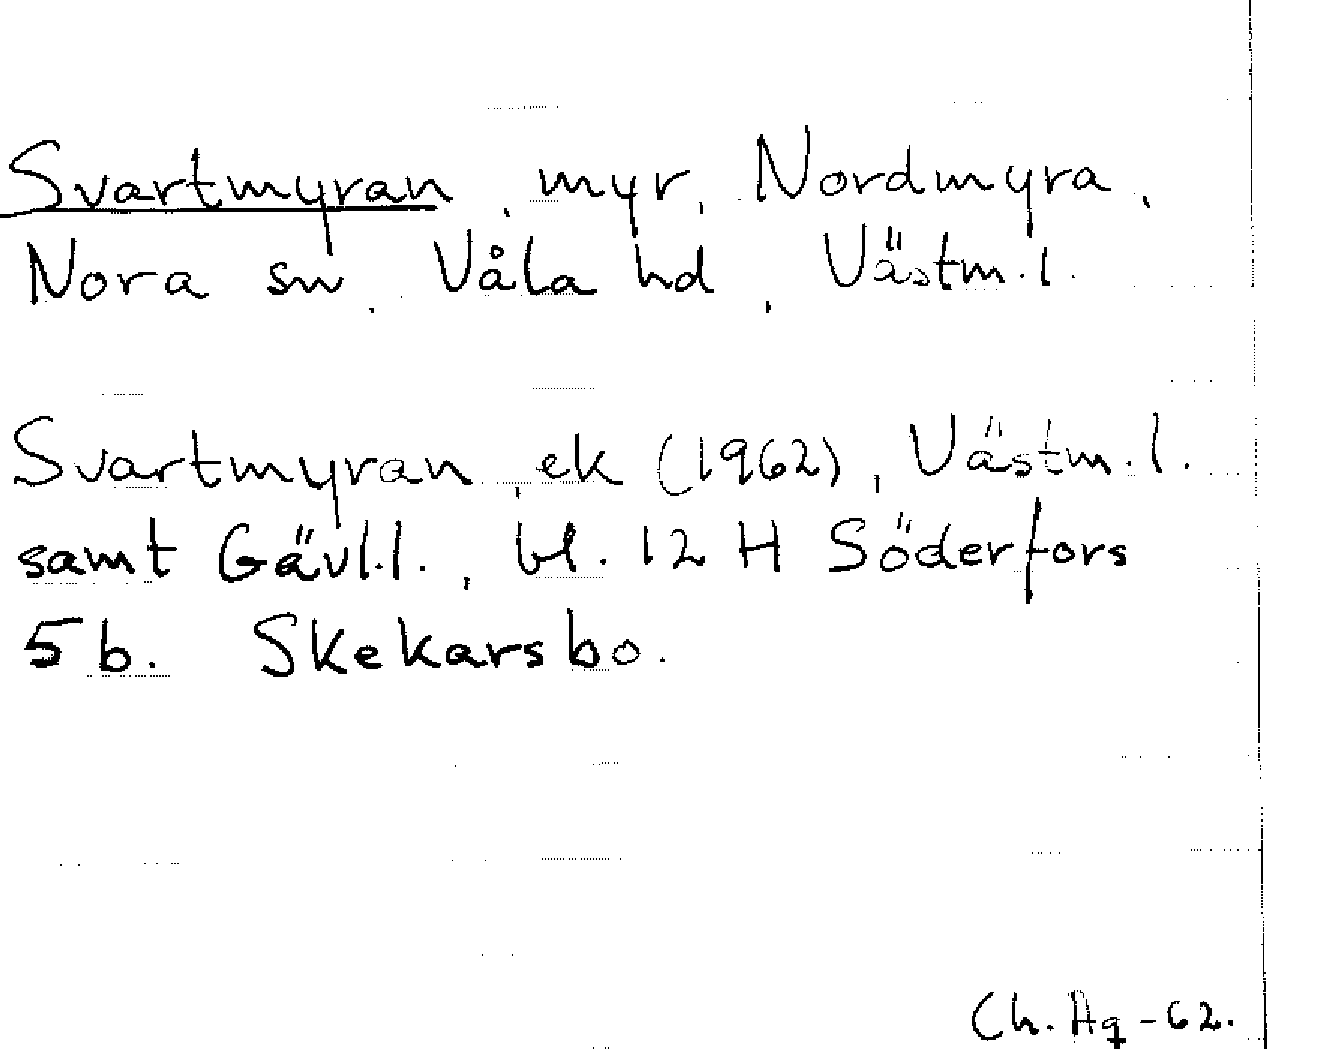 Svartmyran, myr, Nordmyra,
Nora sn, Våla hd, Västm.l.
Svartmyran, ek (1962), Västm.l.
samt Gävl.l., bl. 12 H Söderfors
5 b. Skekarsbo.
Ch. Aq -62.